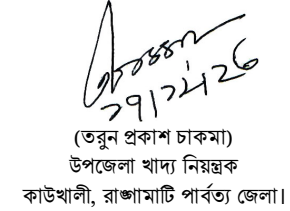 (তরুন প্রকাশ চাকমা)
উপজেলা খাদ্য নিয়ন্ত্রক
কাউখালী, রাঙ্গামাটি পার্বত্য জেলা।